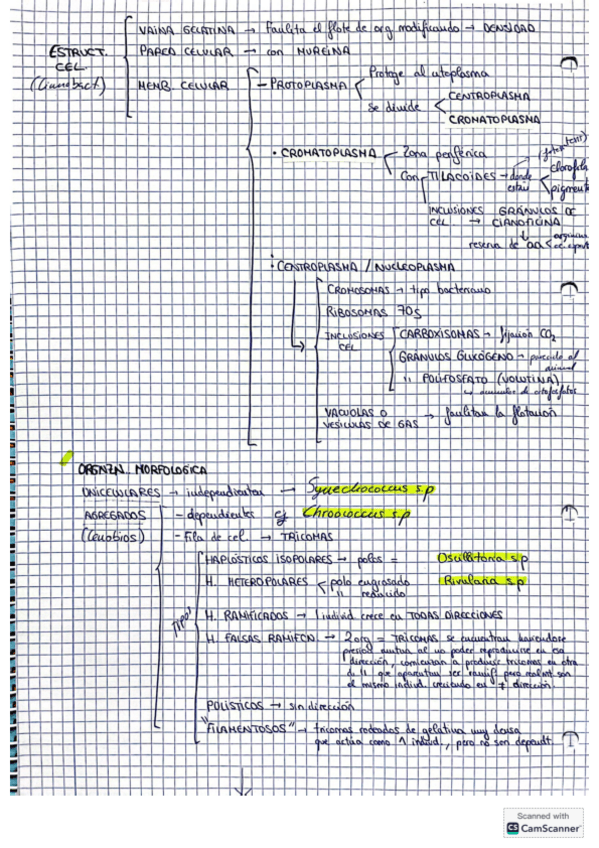 VAINA GELATINA → Facilita el flote de org modificando → DENSIDAD
ESTRUCT. CEL PARED CELULAR → con MUREINA
(Cianobact.) MEMB. CELULAR - PROTOPLASMA Protege al citoplasma
se divide CENTROPLASMA
CROMATOPLASMA
• CROMATOPLASMA Zona periférica
Con TILACOIDES → donde están clorofila
pigment
INCLUSIONES CEL → GRÁNULOS DE CIANOFICINA
reserva de aa
• CENTROPLASMA / NUCLEOPLASMA
CROMOSOMAS → tipo bacteriano
RIBOSOMAS 70s
INCLUSIONES CEL CARBOXISOMAS → fijación CO2
GRÁNULOS GLUCÓGENO → parecido al animal
" POLIFOSFATO (VOLUTINA)
↳ acumulos de ortofosfatos
VACUOLAS O VESICULAS DE GAS → facilitan la flotación
ORGNZN. MORFOLOGICA
UNICELULARES → independientes → Synechococcus s.p
AGREGADOS - dependientes ej Chroococcus s.p
(Cenobios) - Fila de cel. → TRICOMAS
TIPOS HAPLÓSTICOS ISOPOLARES → polos = Oscillatoria s.p
H. HETEROPOLARES polo engrosado Rivularia s.p
" reducido
H. RAMIFICADOS → 1 individ crece en TODAS DIRECCIONES
H. FALSAS RAMIFCN → 2 org = TRICOMAS se encuentran haciendose
presión mutua al no poder reproducirse en esa
dirección, comienzan a producir tricomas en otra
que aparentan ser ramif pero realmt son
el mismo individ. creciendo en ≠ dirección.
POLÍSTICOS → sin dirección
"FILAMENTOSOS" → tricomas rodeados de gelatina muy densa
que actúa como 1 individ., pero no son dependt.
Scanned with
CS CamScanner